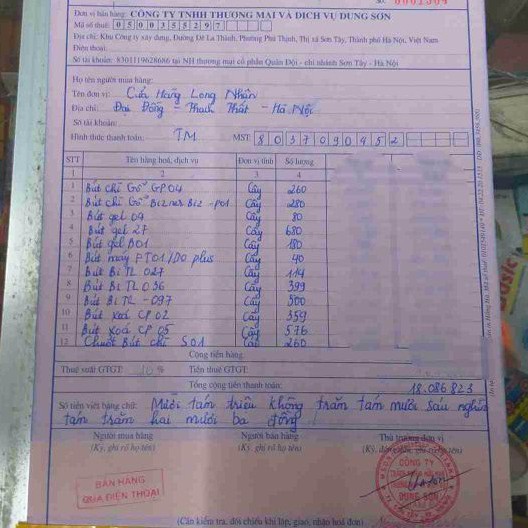 Đơn vị bán hàng: CÔNG TY TNHH THƯƠNG MẠI VÀ DỊCH VỤ DUNG SƠN
Mã số thuế: 0500335297
Địa chỉ: Khu Công ty xây dựng, Đường Đê La Thành, Phường Phú Thịnh, Thị xã Sơn Tây, Thành phố Hà Nội, Việt Nam
Điện thoại:
Số tài khoản: 8301119628686 tại NH thương mại cổ phần Quân Đội - chi nhánh Sơn Tây - Hà Nội
Họ tên người mua hàng:
Tên đơn vị: Cửa Hàng Long Nhân
Địa chỉ: Đại Đồng - Thạch Thất - Hà Nội
Số tài khoản:
Hình thức thanh toán: TM MST: 8037090452
STT Tên hàng hoá, dịch vụ Đơn vị tính Số lượng
1 2 3 4
1 Bút chì Gỗ GP04 Cây 260
2 Bút chì Gỗ Biznes Biz -P01 Cây 280
3 Bút gel 04 Cây 80
4 Bút gel 27 Cây 680
5 Bút gel B01 Cây 180
6 Bút máy FT01/DO plus Cây 40
7 Bút Bi TL 027 Cây 114
8 Bút Bi TL 036 Cây 399
9 Bút Bi TL -097 Cây 300
10 Bút xoá CP 02 Cây 359
11 Bút xoá CP 05 Cây 576
12 Chuốt Bút chì S01 Cái 260
Cộng tiền hàng:
Thuế suất GTGT: 10 % Tiền thuế GTGT:
Tổng cộng tiền thanh toán: 18.086.823
Số tiền viết bằng chữ: Mười tám triệu không trăm tám mươi sáu nghìn
tám trăm hai mươi ba đồng
Người mua hàng Người bán hàng Thủ trưởng đơn vị
(Ký, ghi rõ họ tên) (Ký, ghi rõ họ tên)
BÁN HÀNG
QUA ĐIỆN THOẠI
CÔNG TY
DUNG SƠN
(Cần kiểm tra, đối chiếu khi lập, giao, nhận hoá đơn)